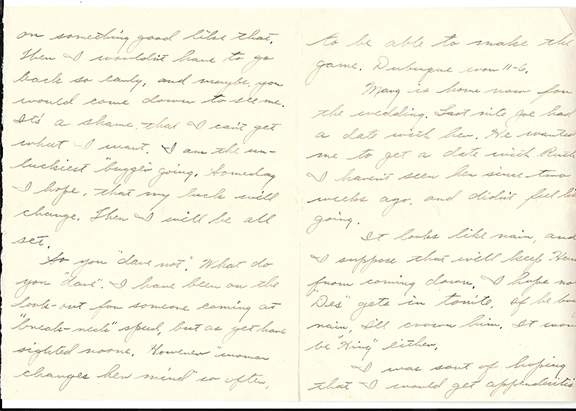 on something good like that.
Then I wouldn't have to go
back so early, and maybe you
would come down to see me.
It's a shame, that I can't get
what I want. I am the un-
luckiest "bugger" going. Someday
I hope, that my luck will
change. Then I will be all
set.
So you "dare not". What do
you "dare". I have been on the
look-out for someone coming at
"break-neck" speed, but as yet have
sighted noone. However "woman
changes her mind" so often,
to be able to make the
game. Dubuque won 11-6.
Mary is home now for
the wedding. Last nite Joe had
a date with her. He wanted
me to get a date with Ruth
I haven't seen her since two
weeks ago, and didn't feel
going.
It looks like rain, and
I suppose that will keep
from coming down. I hope
"Des" gets in tonite. If he
rain, I'll crown him. It
be "King" either.
I was sort of hoping
that I would get appendicitis